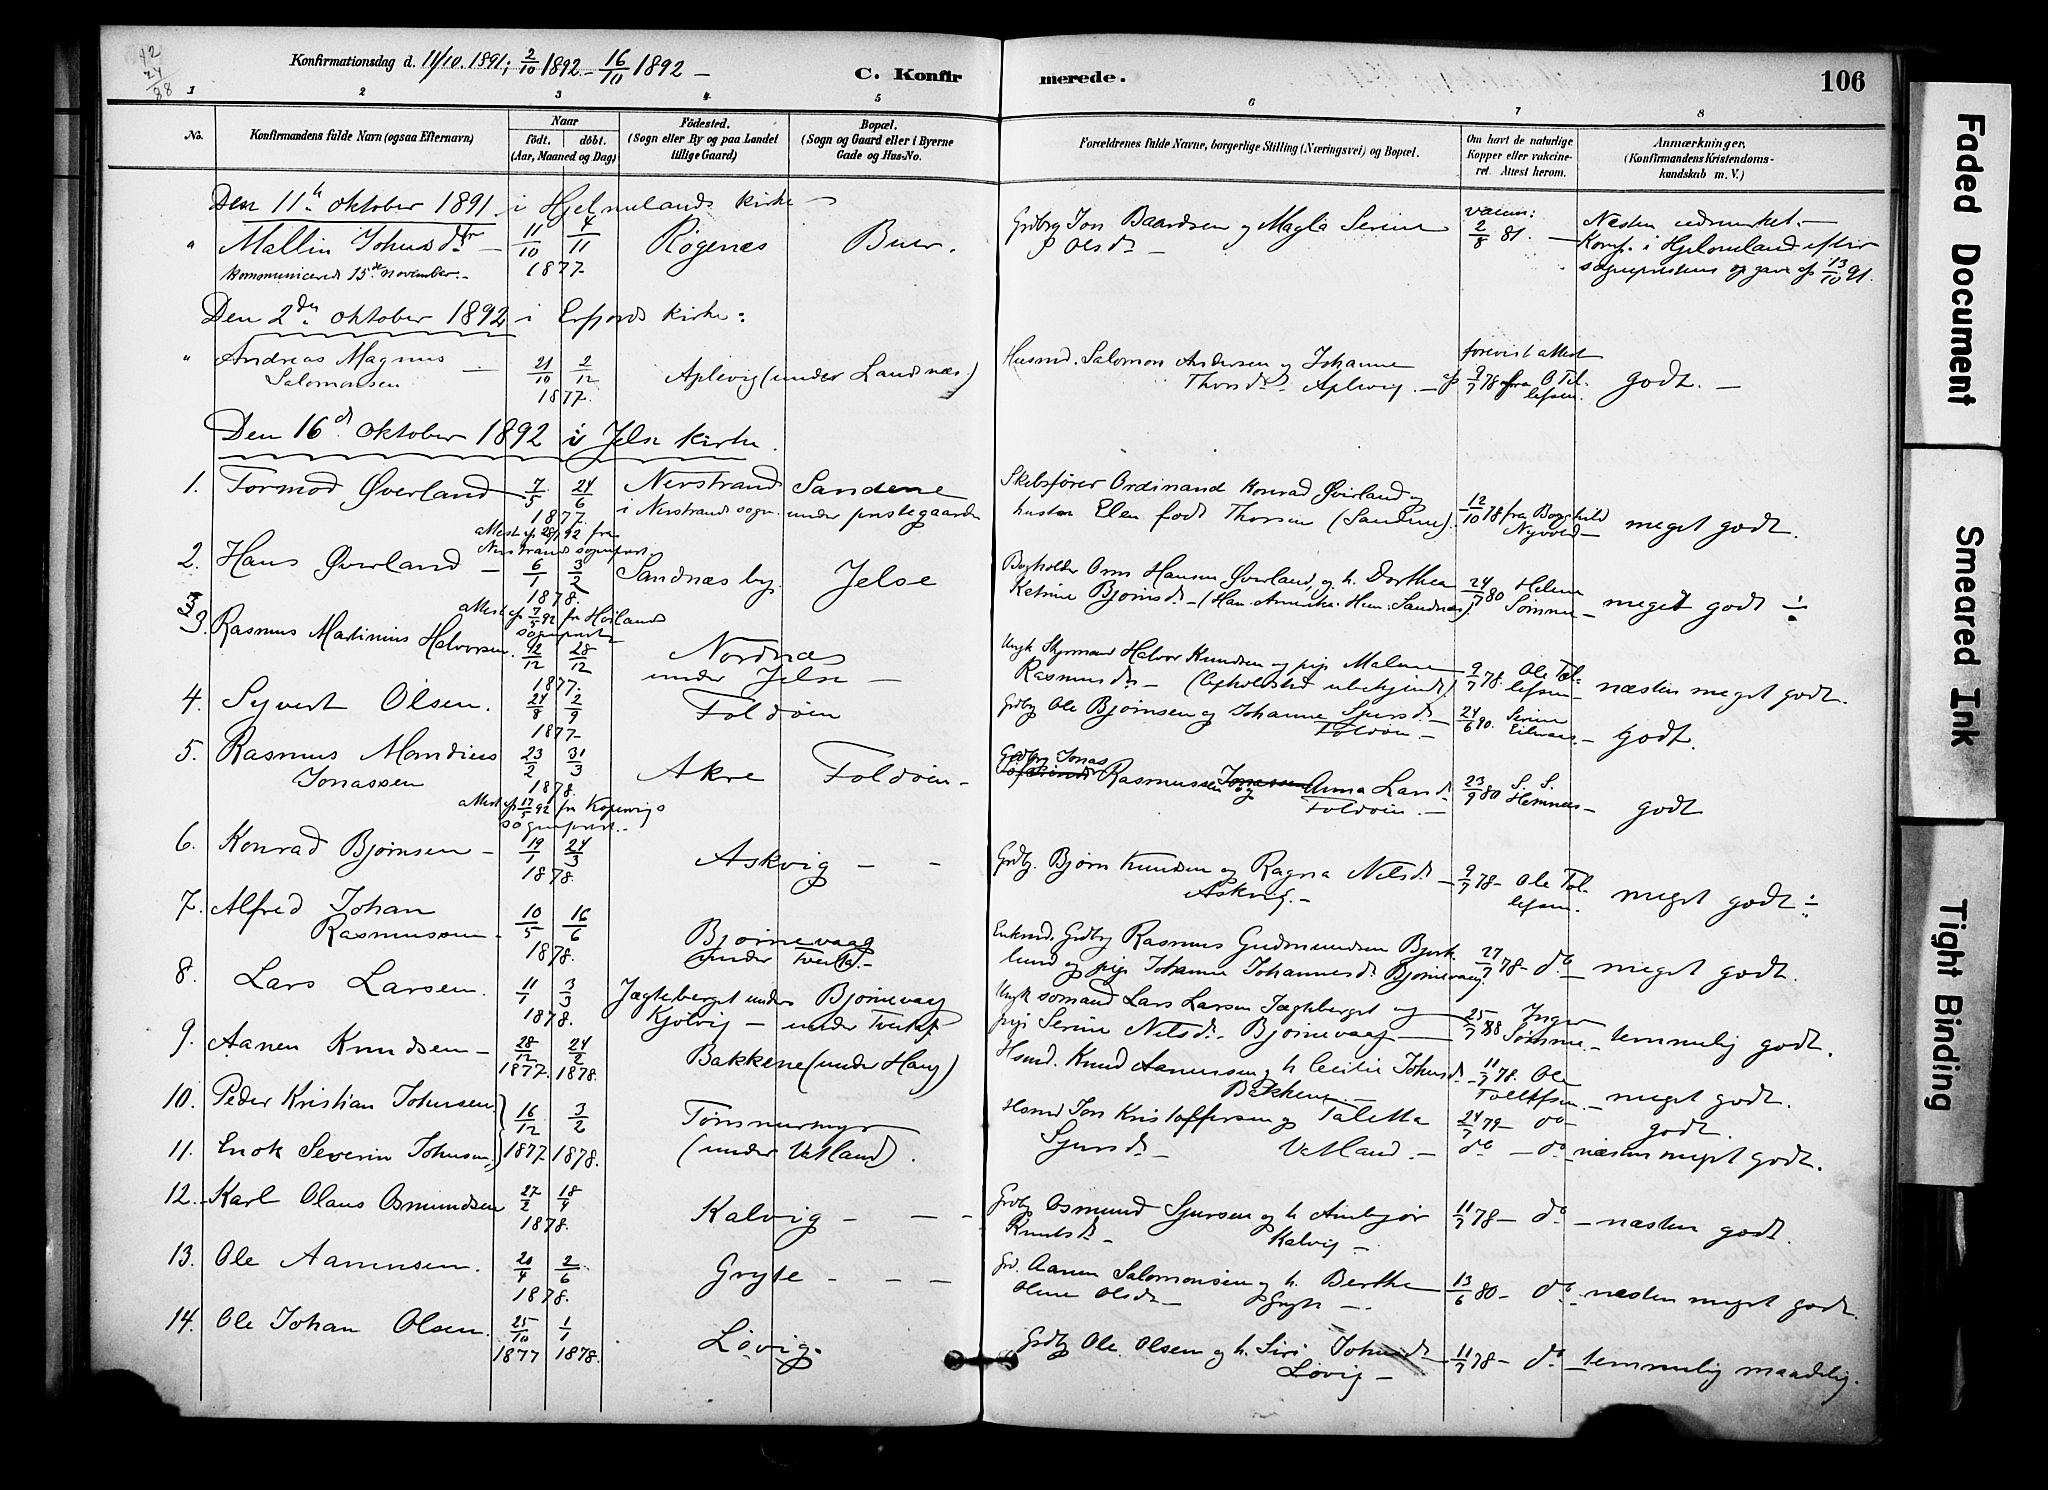 42
24
88
Konfirmationsdag d. 11/10. 1891; 2/10 1892 – 16/10 1892 –
C. Konfir merede. 106
1 2 3 4 5 6 7 8
No.
Konfirmandens fulde Navn (ogsaa Efternavn)
Naar
födt. döbt.
(Aar, Maaned og Dag)
Födested.
(Sogn eller By og paa Landet
tillige Gaard)
Bopæl.
(Sogn og Gaard eller i Byerne
Gade og Hus-No.
Forældrenes fulde Navne, borgerlige Stilling (Næringsvei) og Bopæl.
Om havt de naturlige
Kopper eller vakcine-
ret. Attest herom.
Anmærkninger.
(Konfirmandens Kristendoms-
kundskab m. V.)
Den 11te oktober 1891 i Hjelmelands kirke –
" Mallin Johnsdtr – 11/10 4/11 1877 Røgenæs Buer. Grdbrg Jon Baardsen og Magla Serine Olsdr – vaccin: 2/8 81. – Næsten udmerket. –
kommuniceret 15de november. – Konf. i Hjelmeland efter
sogneprestens opgave af 13/10 91.
Den 2den oktober 1892 i Erfjords kirke:
" Andreas Magnus Salomonsen – 21/10 2/12 1877. Aplevig (under Landnæs) Husmd. Salomon Andersen og Johanne Thorsdr Aplevig – forevist attest af 9/7 78 fra O Tollefsen. godt. –
Den 16d oktober 1892 i Jelse kirke.
1. Tormod Øverland – 7/5 24/6 1877. Nerstrand i Nerstrands sogn. Sandene under prestegaarden Skibsfører Ordinand Konrad Øverland og hustru Elen født Thorsen (Sandene). 12/10 78 fra Borghild Nyvold – meget godt.
attest af 28/1 92 fra
Nerstrands sognepr.
2. Hans Øverland – 6/1 3/2 1878. Sandnæs by. Jelse Bogholder Omm Hansen Øverland, og h. Dorthea Katrine Bjørnsdr – (Han: Amerika. Hun: Sandnæs) 24/7 80 Helene Sømme – meget godt ÷
attest af 7/5 92 fr Høilands
sogneprest
3. Rasmus Martinius Halvorsen. 12/12 28/12 1877. Nordnæs under Jelse – Ungk Styrmand Halvor Knudsen og pige Malene Rasmusdr – (Opholdsted ubekjendt) 9/7 78. Ole Tollefsen – næsten meget godt.
4. Syvert Olsen. 24/8 2/9 1877 – Foldøen Grdbg Ole Bjørnsen og Johanne Sjursdr – Foldøen – 24/6 90. Serine – godt.
5. Rasmus Mandius Jonassen 23/2 31/3 1878. Akre Foldøen – Grdbrg Jonas Rasmussen og Anna Larsdr Foldøen. – 23/9 80 S. S. Hemnæs – godt
attest af 17/5 92 fr Kopervigs
sogneprest. –
6. Konrad Bjørnsen – 19/1 24/3 1878. Askvig – – Grdbg. Bjørn Knudsen og Ragna Nilsdr – Askvig. – 9/7 78 – Ole Tollefsen. meget godt ÷
7. Alfred Johan Rasmussen – 10/5 16/6 1878. Bjørnevaag under Tveita. – Enkmd. Grdbg Rasmus Gudmundsen Bjerklund og pige Johanne Johannesdr Bjørnevaag. 27/7 78 – do – meget godt.
8. Lars Larsen. 11/1 3/3 1878. Jægteberget under Kjølvig – Bjørnevaag under Tveita. Ungk sømand Lars Larsen Jægteberget og pige Serine Nilsdr – Bjørnevaag – 25/7 88 Inger Sømme. – temmelig godt.
9. Aanen Knudsen – 28/12 1877. 24/2 1878. Bakkene (under Haug) Hsmd. Knud Aanensen og h Cecilie Johnsdr – Bakkene. – 11/7 78. Ole Tollefsen – meget godt.
10. Peder Kristian Johnsen. 16/12 3/2 Tømmermyr Hsmd Jon Kristoffersen og Taletta 24/7 79 – do – godt.
11. Enok Severin Johnsen. 1877. 1878. (under Vatland). Sjursdr – Vatland. – do – do – næsten meget godt.
12. Karl Olaus Osmundsen 27/2 18/4 1878. Kalvig – – – Grdbg Osmund Sjursen og h Anbjør Knutsdr – Kalvig – 11/7 78 – do – næsten godt.
13. Ole Aanensen. 20/4 2/6 1878. Gryte – – – Grd. Aanen Salomonsen og h. Berthe Oline Olsdr – Gryte –. 13/6 80 – do – næsten meget godt.
14. Ole Johan Olsen. 25/10 1877 1/1 1878. Løvig. Grdbg Ole Olsen og h. Siri Johnsdr – Løvig – 11/7 78 – do – temmelig maadelig.
Faded Document
Smeared Ink
Tight Binding